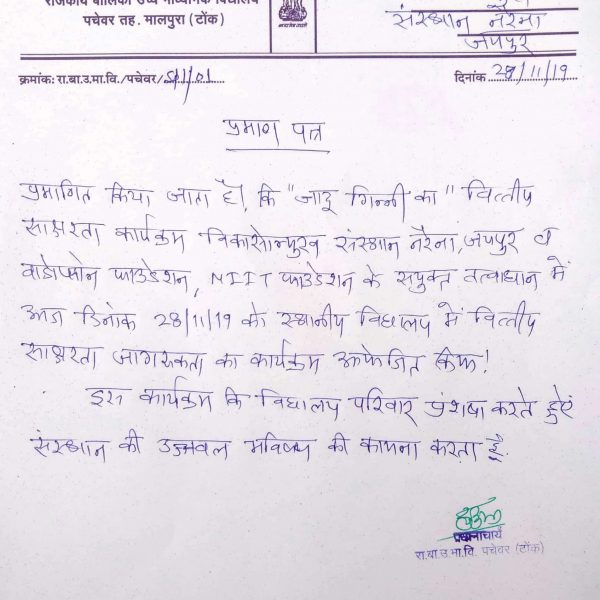 राजकीय बालिका उच्च माध्यमिक विद्यालय
पचेवर तह. मालपुरा (टोंक)
संस्थान नरैना
जयपुर
क्रमांक: रा.बा.उ.मा.वि./पचेवर/SP1/01
दिनांक 28/11/19
प्रमाण पत्र
प्रमाणित किया जाता है। कि "जादू गिन्नी का" वित्तीय
साक्षरता कार्यक्रम विकासोन्मुख संस्थान नरैना, जयपुर व
वाडोफोन फाउंडेशन, NIIT फाउंडेशन के सयुक्त तत्वाधान में
आज दिनांक 28/11/19 को स्थानीय विद्यालय में वित्तीय
साक्षरता जागरुकता का कार्यक्रम आयोजित किया!
इस कार्यक्रम कि विद्यालय परिवार प्रंशषा करते हुऐं
संस्थान की उज्जवल भविष्य की कामना करता है.
प्रधानाचार्य
रा.बा.उ.मा.वि. पचेवर (टोंक)